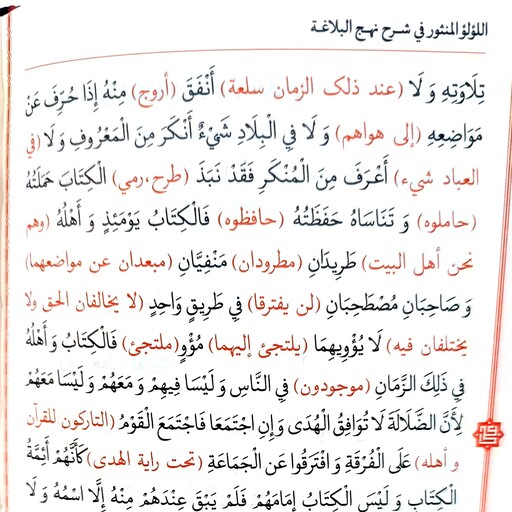 اللؤلؤ المنثور في شرح نهج البلاغة
تِلَاوَتِهِ وَ لَا (عند ذلك الزمان سلعة) أَنْفَقَ (أروج) مِنْهُ إِذَا حُرِّفَ عَنْ
مَوَاضِعِهِ (إلى هواهم) وَ لَا فِي الْبِلَادِ شَيْءٌ أَنْكَرَ مِنَ الْمَعْرُوفِ وَ لَا (في
العباد شيء) أَعْرَفَ مِنَ الْمُنْكَرِ فَقَدْ نَبَذَ (طرح،رمي) الْكِتَابَ حَمَلَتُهُ
(حاملوه) وَ تَنَاسَاهُ حَفَظَتُهُ (حافظوه) فَالْكِتَابُ يَوْمَئِذٍ وَ أَهْلُهُ (وهم
نحن أهل البيت) طَرِيدَانِ (مطرودان) مَنْفِيَّانِ (مبعدان عن مواضعهما)
وَ صَاحِبَانِ مُصْطَحِبَانِ (لن يفترقا) فِي طَرِيقٍ وَاحِدٍ (لا يخالفان الحق ولا
يختلفان فيه) لَا يُؤْوِيهِمَا (يلتجئ إليهما) مُؤْوٍ (ملتجئ) فَالْكِتَابُ وَ أَهْلُهُ
فِي ذَلِكَ الزَّمَانِ (موجودون) فِي النَّاسِ وَ لَيْسَا فِيهِمْ وَ مَعَهُمْ وَ لَيْسَا مَعَهُمْ
لِأَنَّ الضَّلَالَةَ لَا تُوَافِقُ الْهُدَى وَ إِنِ اجْتَمَعَا فَاجْتَمَعَ الْقَوْمُ (التاركون للقرآن
و أهله) عَلَى الْفُرْقَةِ وَ افْتَرَقُوا عَنِ الْجَمَاعَةِ (تحت راية الهدى) كَأَنَّهُمْ أَئِمَّةُ
الْكِتَابِ وَ لَيْسَ الْكِتَابُ إِمَامَهُمْ فَلَمْ يَبْقَ عِنْدَهُمْ مِنْهُ إِلَّا اسْمُهُ وَ لَا